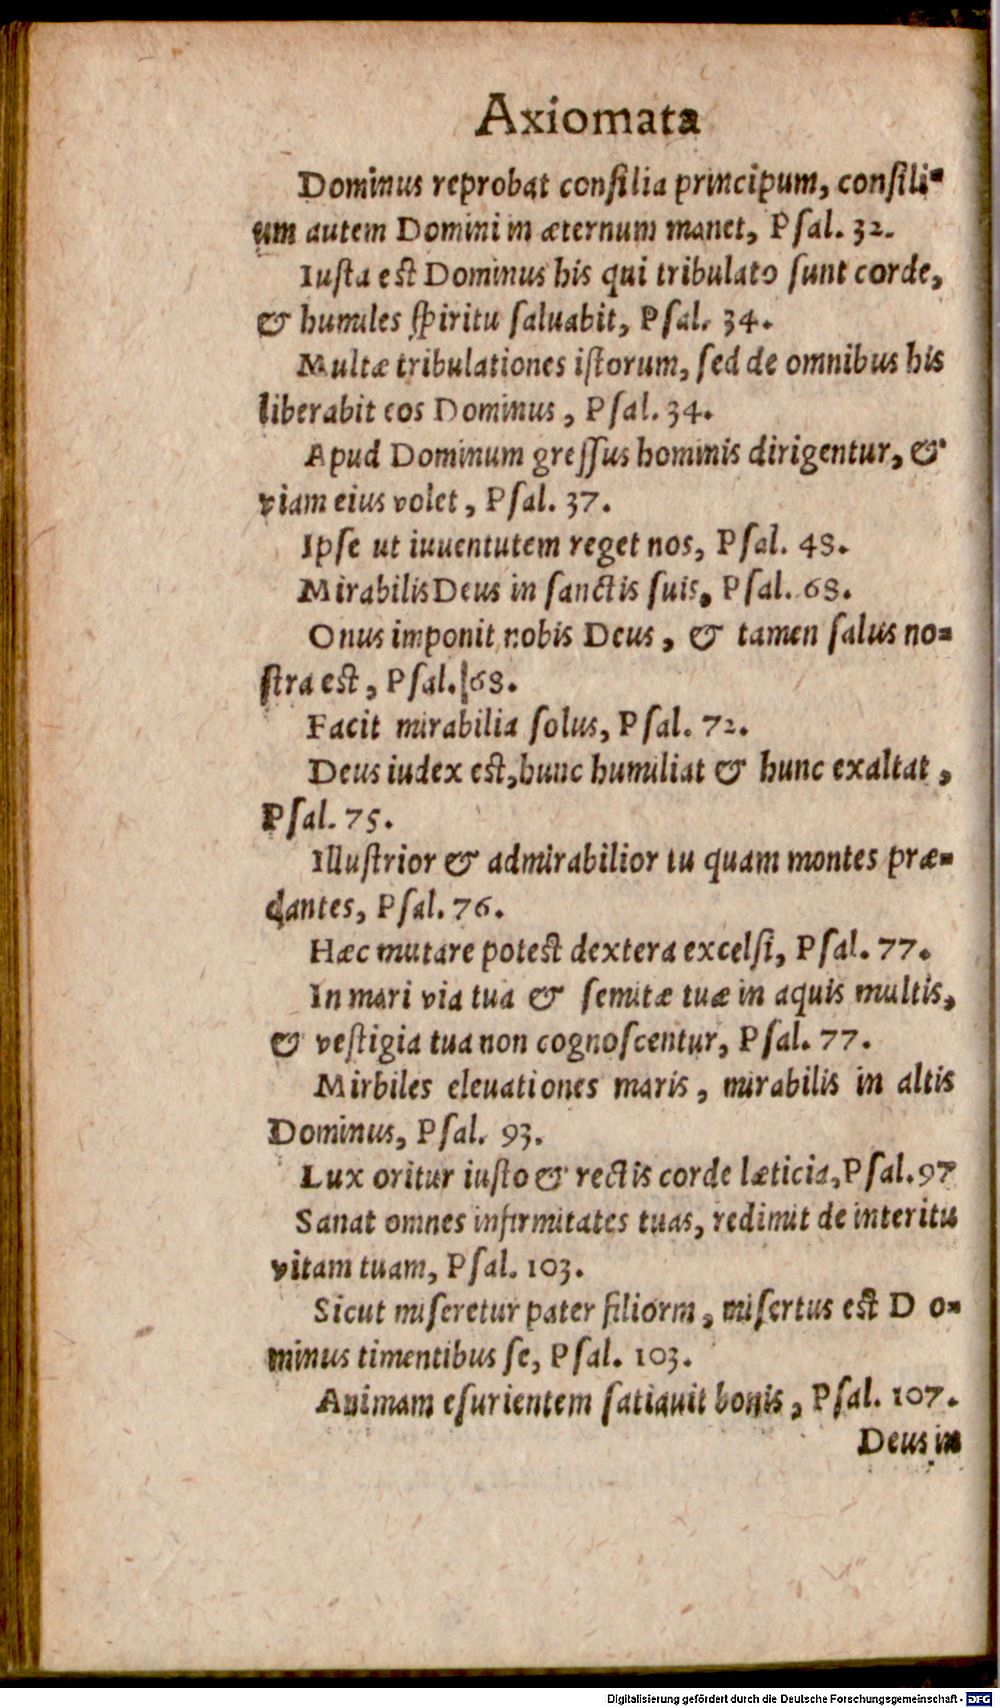 Axiomata
Dominus reprobat conſilia principum, conſili-
um autem Domini in æternum manet, Pſal. 32.
Iuſta eſt Dominus his qui tribulato ſunt corde,
& humiles ſpiritu ſaluabit, Pſal. 34.
Multæ tribulationes iſtorum, ſed de omnibus his
liberabit eos Dominus, Pſal. 34.
Apud Dominum greſſus hominis dirigentur, &
viam eius volet, Pſal. 37.
Ipſe ut iuuentutem reget nos, Pſal. 48.
Mirabilis Deus in ſanctis ſuis, Pſal. 68.
Onus imponit nobis Deus, & tamen ſalus no-
ſtra eſt, Pſal. 68.
Facit mirabilia ſolus, Pſal. 72.
Deus iudex eſt, hunc humiliat & hunc exaltat,
Pſal. 75.
Illuſtrior & admirabilior tu quam montes præ-
dantes, Pſal. 76.
Hæc mutare poteſt dextera excelſi, Pſal. 77.
In mari via tua & ſemitæ tuæ in aquis multis,
& veſtigia tua non cognoſcentur, Pſal. 77.
Mirbiles eleuationes maris, mirabilis in altis
Dominus, Pſal. 93.
Lux oritur iuſto & rectis corde læticia, Pſal. 97
Sanat omnes infirmitates tuas, redimit de interitu
vitam tuam, Pſal. 103.
Sicut miſeretur pater filiorm, miſertus eſt D o-
minus timentibus ſe, Pſal. 103.
Animam eſurientem ſatiauit bonis, Pſal. 107.
Deus in
Digitalisierung gefördert durch die Deutsche Forschungsgemeinschaft - DFG